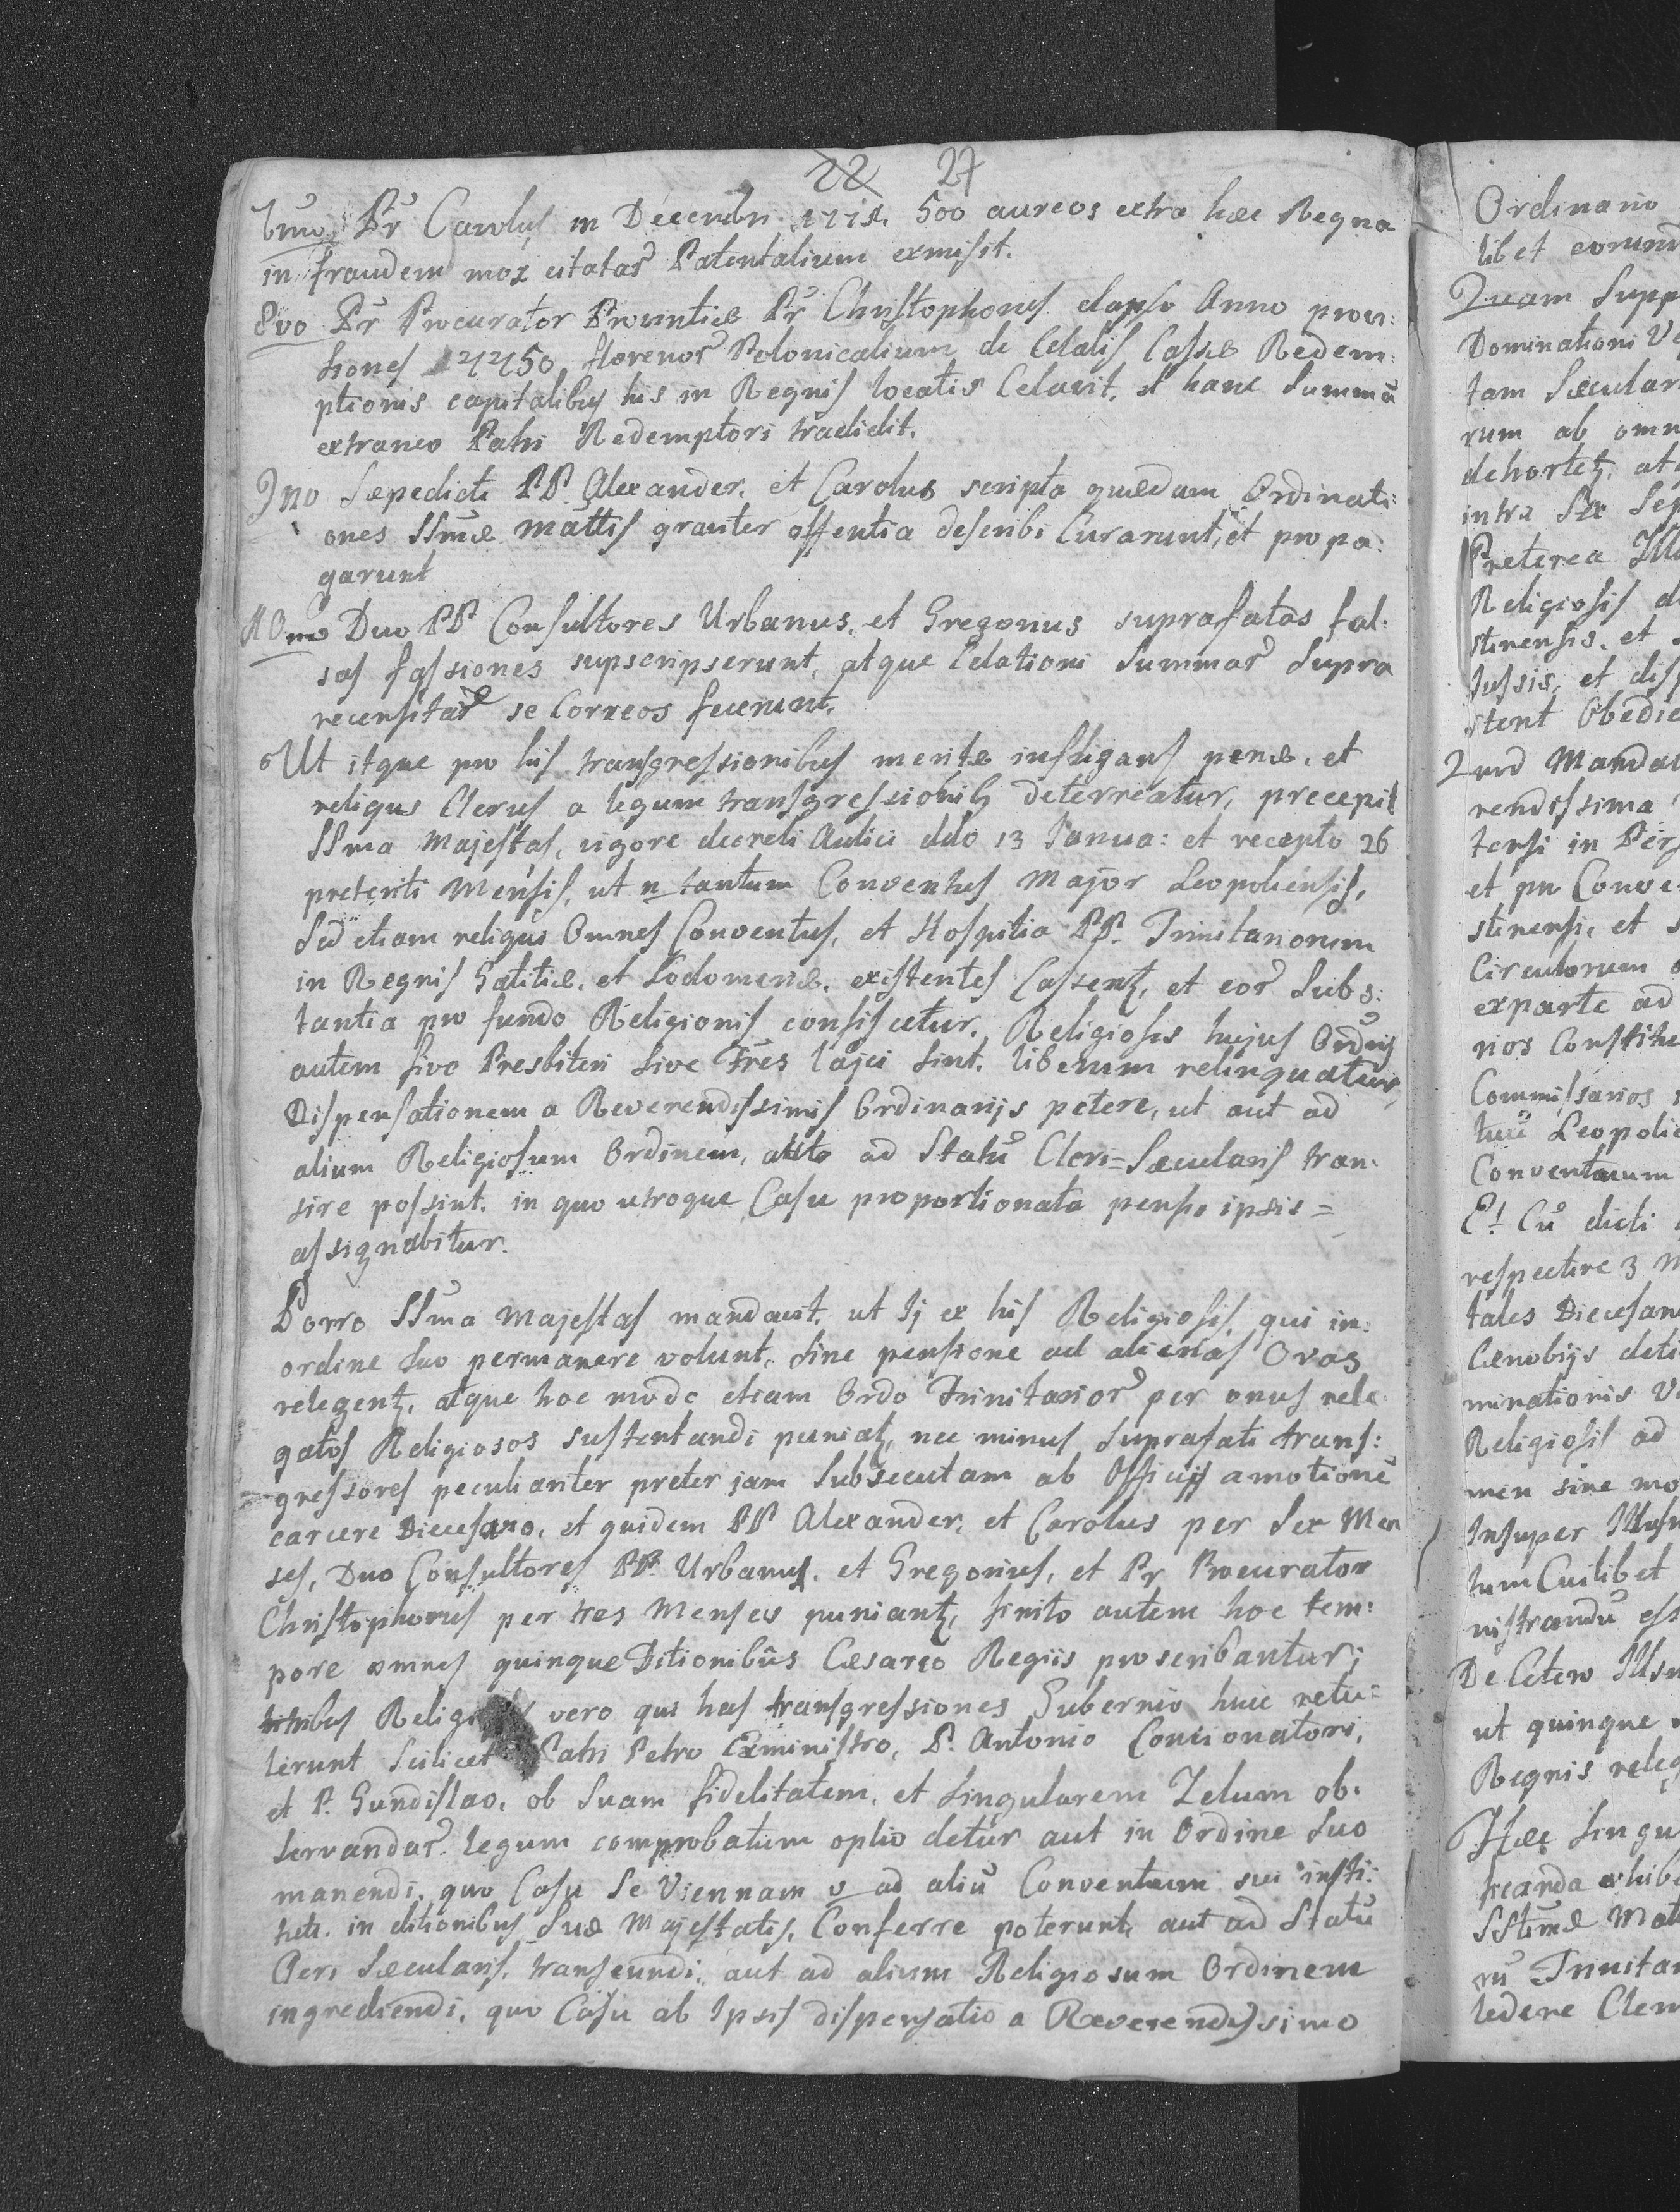 22 27
7mo Pr̃ Carolus in Decembri 500 aureos extra hæc Regna
in fraudem mox citatar̃ Patentalium exmisit.
8vo Pr̃ Procurator Provintiæ Pr̃ Christophorus elapso Anno provi:
siones florenor̃ Polonicalium de Celatis Cassæ Redem:
ptionis capitalibus his in Regnis locatis Celavit, et hanc Summã
extraneo Patri Redemptori tradidit.
9no Sæpedicti PP. Alexander, et Carolus scripta quædam Ordinati:
ones SSmæ Mattis graviter offentia describi Curarunt, et propa:
garunt
10mo Duo PP Consultores Urbanus, et Gregorius suprafatas fal:
sas fassiones supscripserunt, atque Celationi Summar̃ Supra
recensitar̃ se Correos fecerunt.
Ut itque pro his transgressionibus meritæ infligant᷑ penæ, et
reliqus Clerus a legum transgressionibꝫ deterreatur, precepit
SSma Majestas, vigore decreti Aulici ddo 13 Janua: et recepto 26
preteriti Mensis, ut n tantum Conventus Major Leopoliensis,
Sed etiam reliqui Omnes Conventus, et Hospitia PP. Trinitariorum
in Regnis Galitiæ, et Lodomeriæ, existentes Cassentꝫ, et eor̃ Subs:
tantia pro fundo Religionis confiscetur. Religiosis hujus Ordinis
autem sive Presbiteri sive Fr̃es lajci sint, liberum relinquatur,
Dispensationem a Reverendissimis Ordinarijs petere, ut aut ad
alium Religiosum Ordinem, aut ad Statũ Cleri=Sæcularis tran:
sire possint, in quo utroque Casu proportionata pensio ipsis=
assignabitur.
Porro SSma Majestas mandavit, ut Ij ex his Religiosis, qui in:
ordine Suo permanere volunt, Sine pensione ad alienas Oras
relegentꝫ, atque hoc modo etiam Ordo Trinitarior̃ per onus rele
gatos Religiosos sustentandi puniatꝫ, nec minus Suprafati trans:
gressores peculiariter preter jam Subsecutam ab Officijs amotionẽ
carcere Diecesano, et quidem PP Alexander, et Carolus per Sex Men
ses, Duo Consultores PP. Urbanus, et Gregorius, et Pr Procurator
Christophorus per tres Menses puniantꝫ, finito autem hoc tem:
pore omnes quinque Ditionibus Cæsareo Regiis proscribantur;
tribus vero qui has transgressiones Gubernio huic retu=
lerunt Scilicet Patri Petro Exministro, P. Antonio Concionatori,
et P. Gundislao, ob Suam fidelitatem, et Singularem Zelum ob:
servandar̃ legum comprobatum optio detur aut in Ordine Suo
manendi, quo Casu Se Viennam v ad aliũ Conventum sui insti:
tuti in ditionibus Suæ Majestatis, Conferre poterunt, aut ad Statũ
Cleri Sæcularis, transeundi, aut ad alium Religiosum Ordinem
ingrediendi, quo Casu ab Ipsis dispensatio a Reverendissimo
Ordinario
libet eorum
Quam Supp
Dominationi
tam Sæcular
rum ab omn
dehortetꝫ, at
intra Sex Sep
Preterea
Religiosis
stinensis, et
tussis, et disp
stent Obedie
2ndo Mandat
rendissima
tensi in
et pro Conve
stinensi, et
Circulorum
exparte ad
rios Constitu
Commissarios
tuũ Leopolie
Conventuum
Et Cũ dicti
respective 3 M
tales Diecesan
Cænobijs deti
minationis
Religiosis ad
men sine mo
Insuper
tum Cuilibet
nistrandũ est
De Cetero
ut quinque
Regnis releg
Hæc Singu
SSimæ
rũ Trinitar
ledere Clem